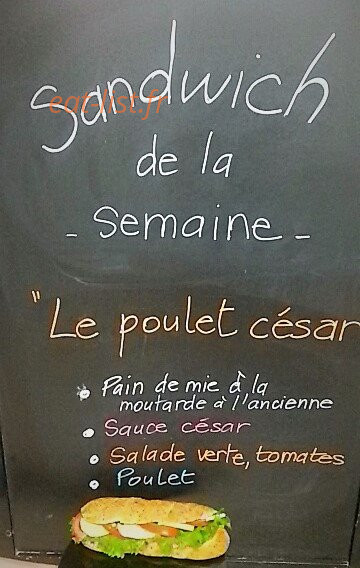 Sandwich
eat-list.fr
de la
- semaine -
"Le poulet césar
• Pain de mie à la
moutarde à l'ancienne
• Sauce césar
• Salade verte, tomates
• Poulet